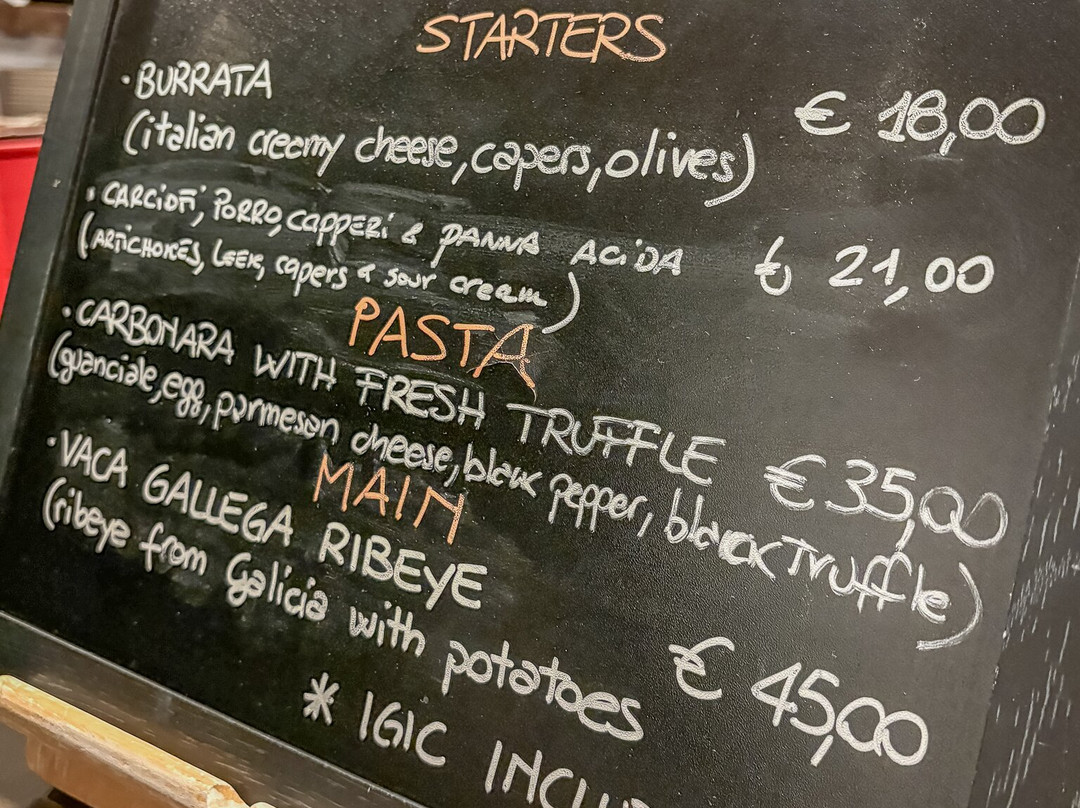 STARTERS
· BURRATA € 18,00
(italian creamy cheese, capers, olives)
· CARCIOFI, PORRO, CAPPERI & PANNA ACIDA € 21,00
(ARTICHOKES, LEEK, capers & sour cream)
PASTA
· CARBONARA WITH FRESH TRUFFLE € 35,00
(guanciale, egg, parmesan cheese, black pepper, black TRuffle)
MAIN
· VACA GALLEGA RIBEYE
(ribeye from Galicia with potatoes € 45,00
* IGIC